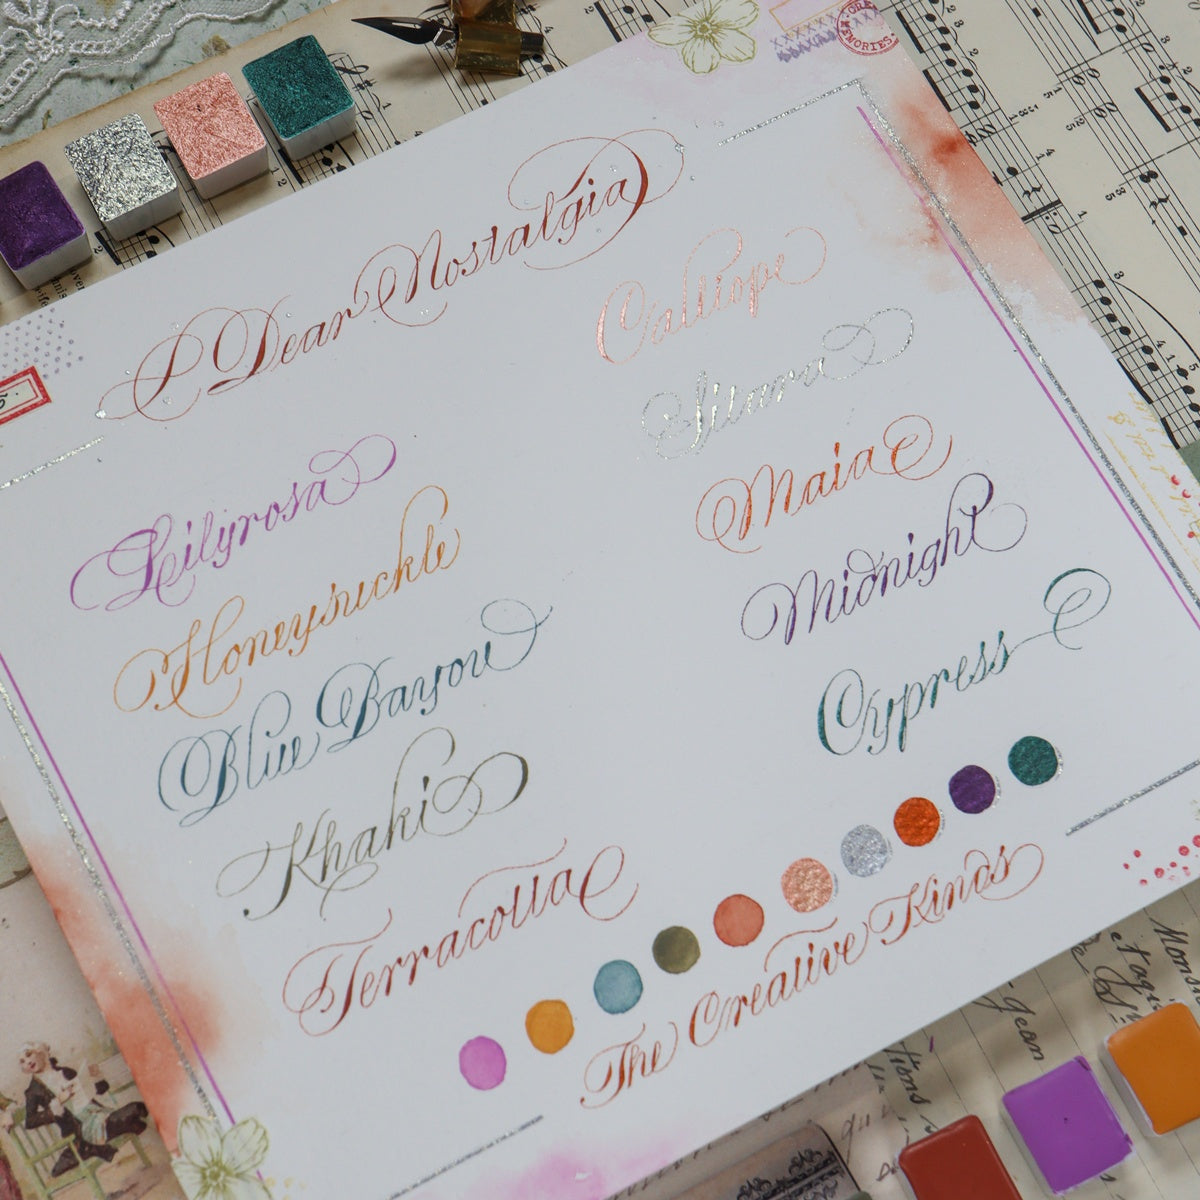 Dear Nostalgia
Lilyrosa
Honeysuckle
Blue Bayou
Khaki
Terracotta
Calliope
Sitara
Maia
Midnight
Cypress
The Creative Kinds
MEMORIES
Jean